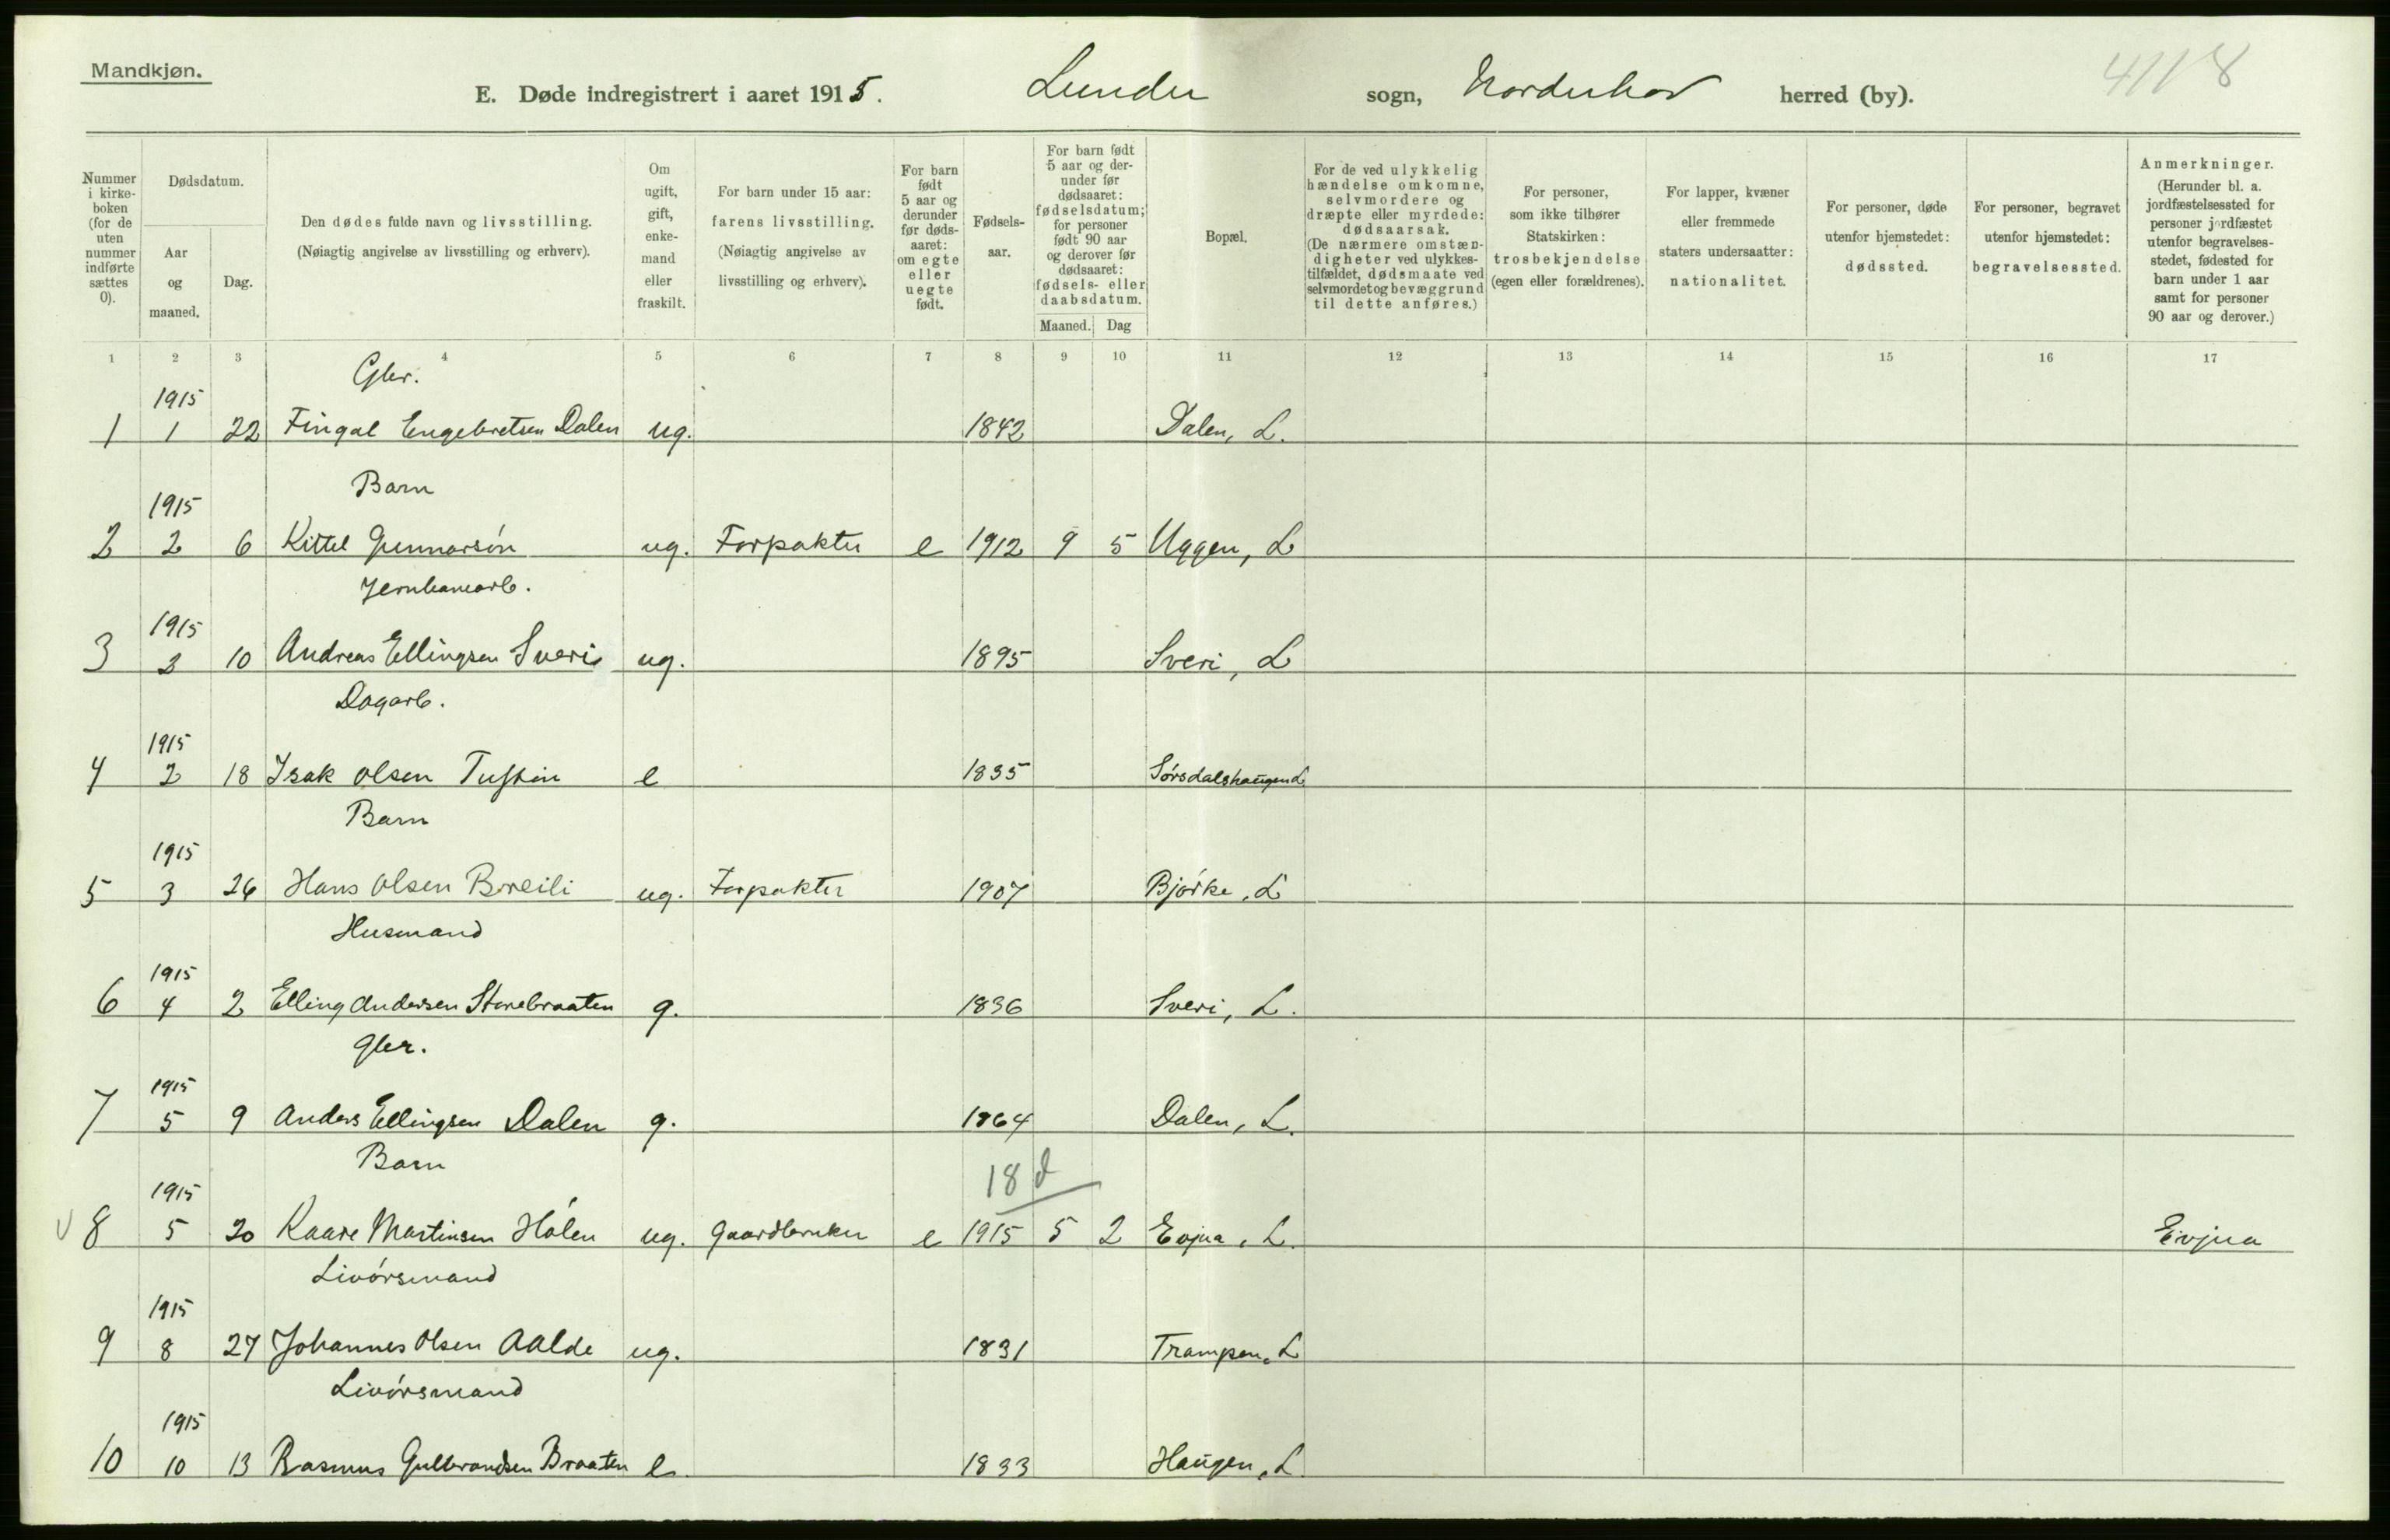 Mandkjøn.
4118
E. Døde indregistrert i aaret 1915. Lunder sogn, Norderhov herred (by).
Nummer i kirkeboken (for de uten nummer indførte sættes 0).
Dødsdatum.
Aar og maaned.
Dag.
Den dødes fulde navn og livsstilling. (Nøiagtig angivelse av livsstilling og erhverv).
Om ugift, gift, enkemand eller fraskilt.
For barn under 15 aar: farens livsstilling. (Nøiagtig angivelse av livsstilling og erhverv).
For barn født 5 aar og derunder før dødsaaret: om egte eller uegte født.
Fødselsaar.
For barn født 5 aar og derunder før dødsaaret: fødselsdatum; for personer født 90 aar og derover før dødsaaret: fødsels- eller daabsdatum.
Maaned. Dag
Bopæl.
For de ved ulykkelig hændelse omkomne, selvmordere og dræpte eller myrdede: dødsaarsak. (De nærmere omstændigheter ved ulykkestilfældet, dødsmaate ved selvmordet og bevæggrund til dette anføres.)
For personer, som ikke tilhører Statskirken: trosbekjendelse (egen eller forældrenes).
For lapper, kvæner eller fremmede staters undersaatter: nationalitet.
For personer, døde utenfor hjemstedet: dødssted.
For personer, begravet utenfor hjemstedet: begravelsessted.
Anmerkninger. (Herunder bl. a. jordfæstelsessted for personer jordfæstet utenfor begravelsesstedet, fødested for barn under 1 aar samt for personer 90 aar og derover.)
1 2 3 4 5 6 7 8 9 10 11 12 13 14 15 16 17
Gbr.
1915
1 1 22 Fingal Engebretsen Dalen ug. 1842 Dalen, L.
Barn
1915
2 2 6 Kittel Gunnarsón ug. Forpakter e 1912 9 5 Uggen, L
Jernbanearb.
1915
3 2 10 Andreas Ellingsen Sveri ug. 1895 Sveri, L
Dagarb.
1915
4 2 18 Isak Olsen e 1835 Sórsdalshaugen L
Barn
1915
5 3 26 Hans Olsen Breili ug. Forpakter 1907 Bjórke, L
Husmand
1915
6 4 2 Elling Andersen Storebraaten g. 1836 Sveri, L.
Gbr.
1915
7 5 9 Anders Ellingsen Dalen g. 1864 Dalen, L.
Barn
18 d
1915
8 5 20 Kaare Martinsen Hólen ug. Gaardbruker e 1915 5 2 Evjua, L. Evjua
Livórsmand
1915
9 8 27 Johannes Olsen Aalde ug. 1831 Trampen, L
Livórsmand
1915
10 10 13 Rasmus Gulbrandsen Braaten e. 1833 Haugen, L